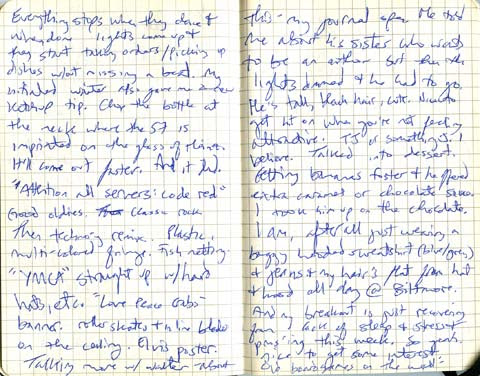 Everything stops when they dance &
when done lights come up &
they start taking orders/picking up
dishes w/out missing a beat. My
initialed waiter also gave me a new
ketchup tip. Chop the bottle at
the neck where the 57 is
imprinted on the glass of Heinz.
It'll come out faster. And it did.
"Attention all servers: code red"
Good oldies. Classic rock
Then techno remix. Plastic,
multi-colored fringe. Fish netting.
"YMCA" straight up w/hard
hats, etc. "Love Peace
banner. roller skates & inline blades
on the ceiling. Elvis poster.
Talking more w/ waiter about
this - my journal open. He told
me about his sister who wants
to be an author but then the
lights dimmed & he had to go.
He's tall, black hair, cute. Nice to
get hit on when you're not feeling
attractive. TJ or something, I
believe. Talked into dessert.
Getting bananas foster & he offered
extra caramel or chocolate sauce.
I took him up on the chocolate.
I am, after all just wearing a
baggy hooded sweatshirt (blue/grey)
& jeans & my hair's flat from hat
& hood all day @ Biltmore.
And my breakout is just recovering
from lack of sleep & stress
this week. So yeah.
Nice to get some interest.
boardgames on the wall -